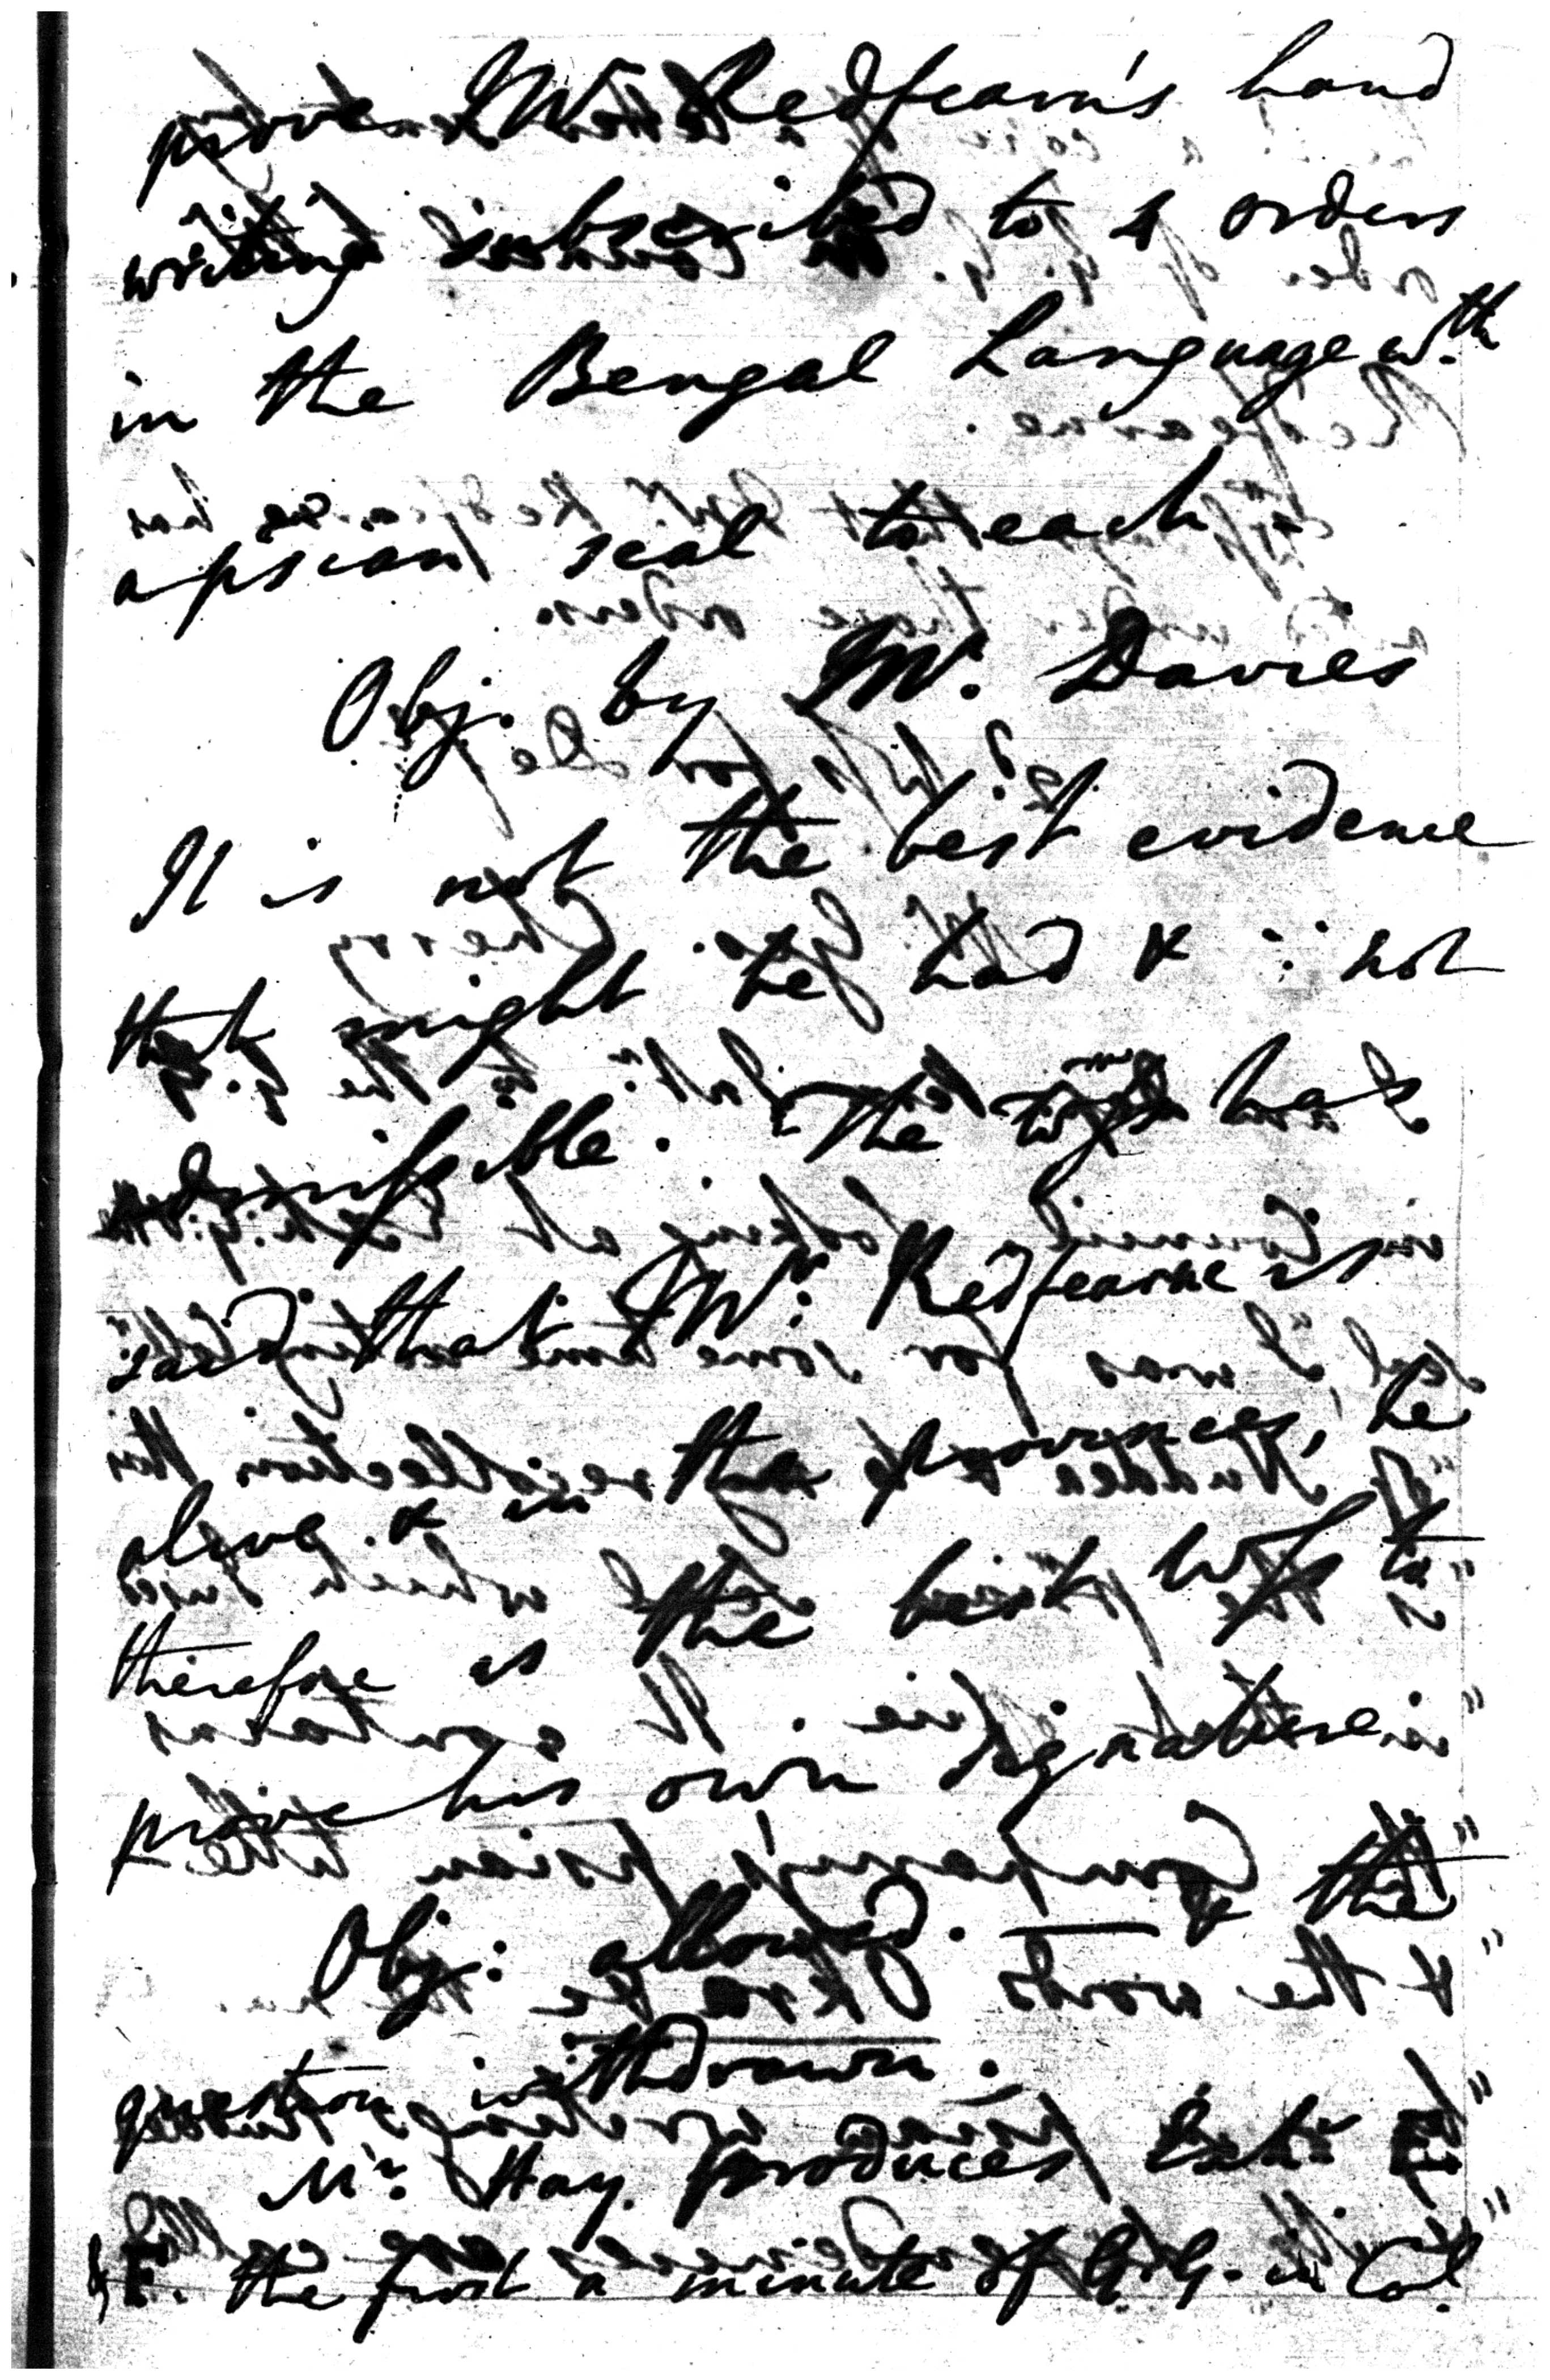 proves Mr. Redfearn's hand
writing subscribed to 4 orders
in the Bengal Language wth
a psian seal to each
Obj. by Mr. Davies
It is not the best evidence
that might be had & ∴ not
admissible. The has
said that Mr. Redfearne is
alive & in the provinces, he
therefore is the best Wss to
prove his own signature
Obj: allowed. — & the
question withdrawn.
Mr. Hay produces Exhts
the first a minute of G. G. in Col.